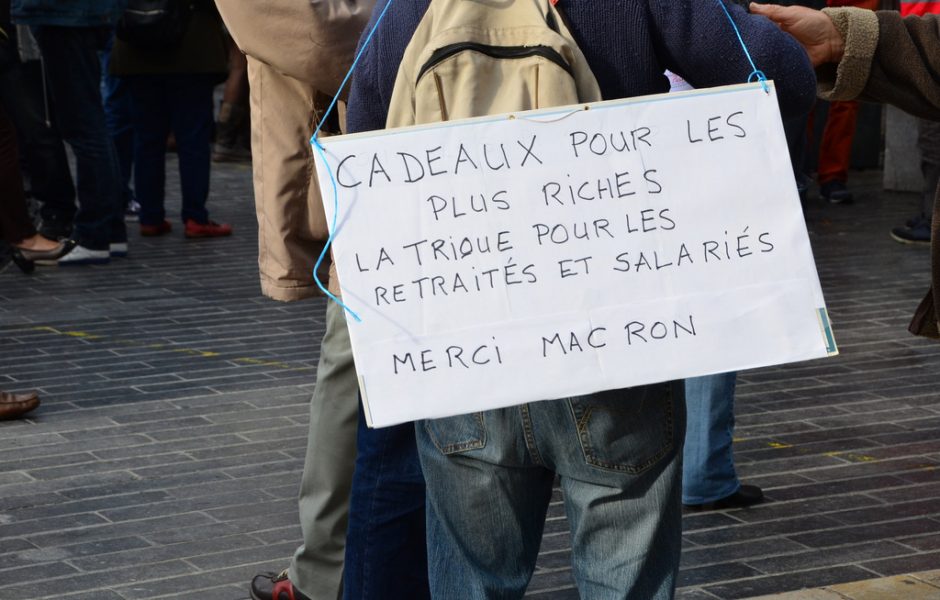 CADEAUX POUR LES
PLUS RICHES
LA TRIQUE POUR LES
RETRAITÉS ET SALARIÉS
MERCI MACRON